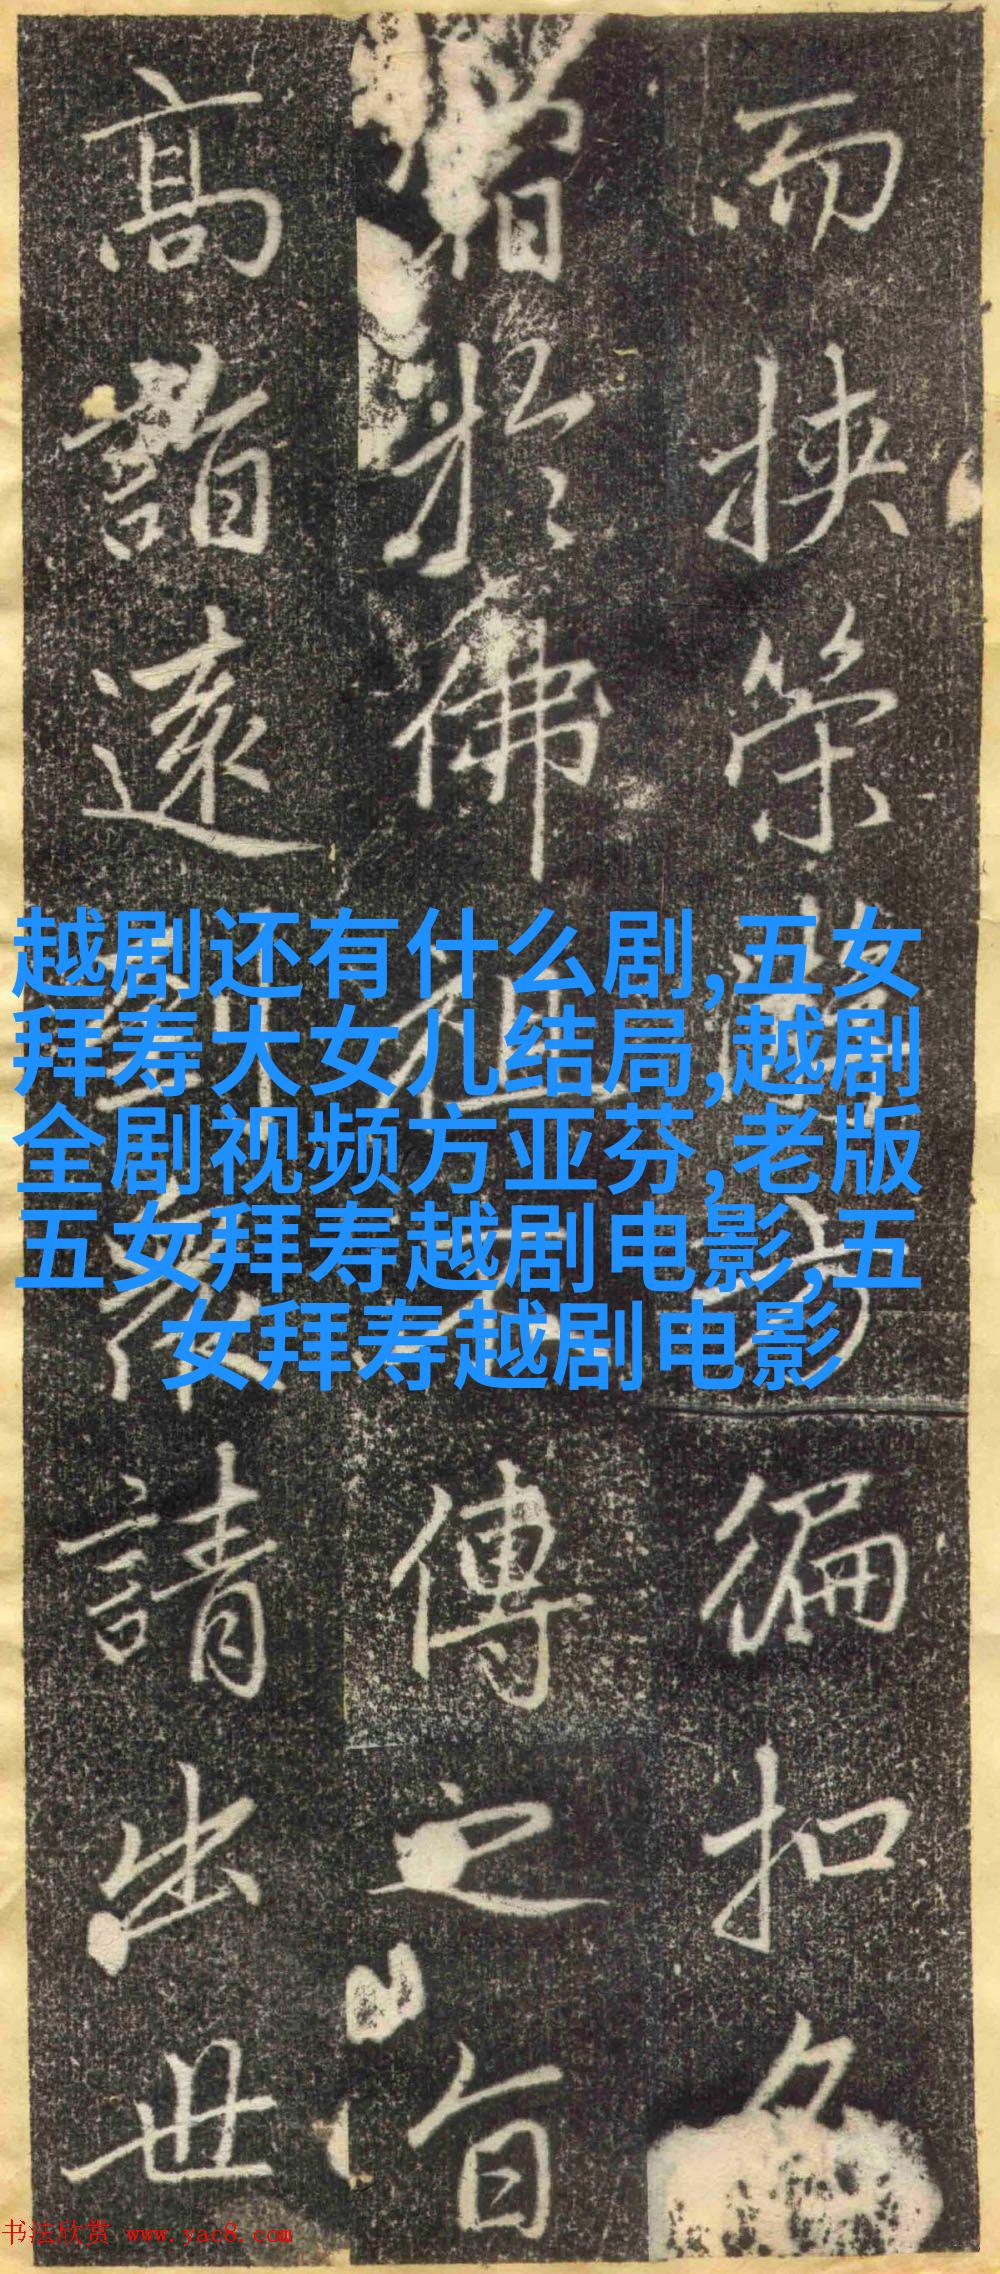 而挾策方徧扣名
於佛祖不傳之旨
高詣遠到衆請出世
越剧还有什么剧,五女
拜寿大女儿结局,越剧
全剧视频方亚芬,老版
五女拜寿越剧电影,五
女拜寿越剧电影
书法欣赏 www.yac8.com